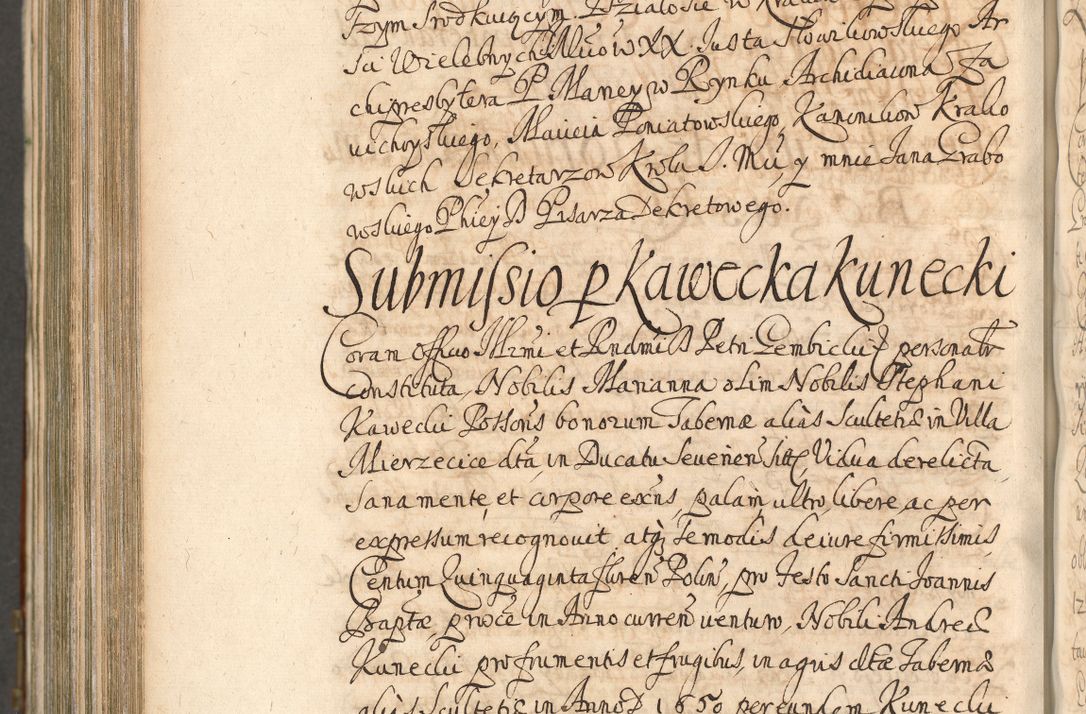 Fzym Srodkuiącym. Działosie w Krakow
sci Wielebnych Xiuow XX. Justa Słowikowskiego Ar
chipresbytera P. Maryey w Rynku Archidiacona Za
wichoyskiego, Macieia Poniatowskiego, Kanonikow Krako
wskich Sekretarzow Krola J. Mci, y mnie Jana Grabo
wskiego Pkiey B Pisarza Dekretowego.
Submissio p Kawecka Kunecki
Coram Officio Illrmi et Rndmi D Petri Gembicki E personatr
constituta, Nobilis Marianna olim Nobilis Stephani
Kawecki Possons bonorum Tabernæ aliàs Scultetiæ in Villa
Mierzecice dta, in Ducatu Severien sitte, Vidua derelicta,
sana mente, et corpore exns, palam, ultro, libere, ac per
expressum recognovit, atq; se modis de iure firmissimis,
Centum Quinquaginta floren Polin, pro festo Sancti Joannis
Baptæ, proxe in Anno curren venturo, Nobili Andreæ
Kunecki pro frumentis et frugibus, in agris dtæ Tabernæ
aliàs Scultetiæ in Anno D 1650 per eundem Kunecki